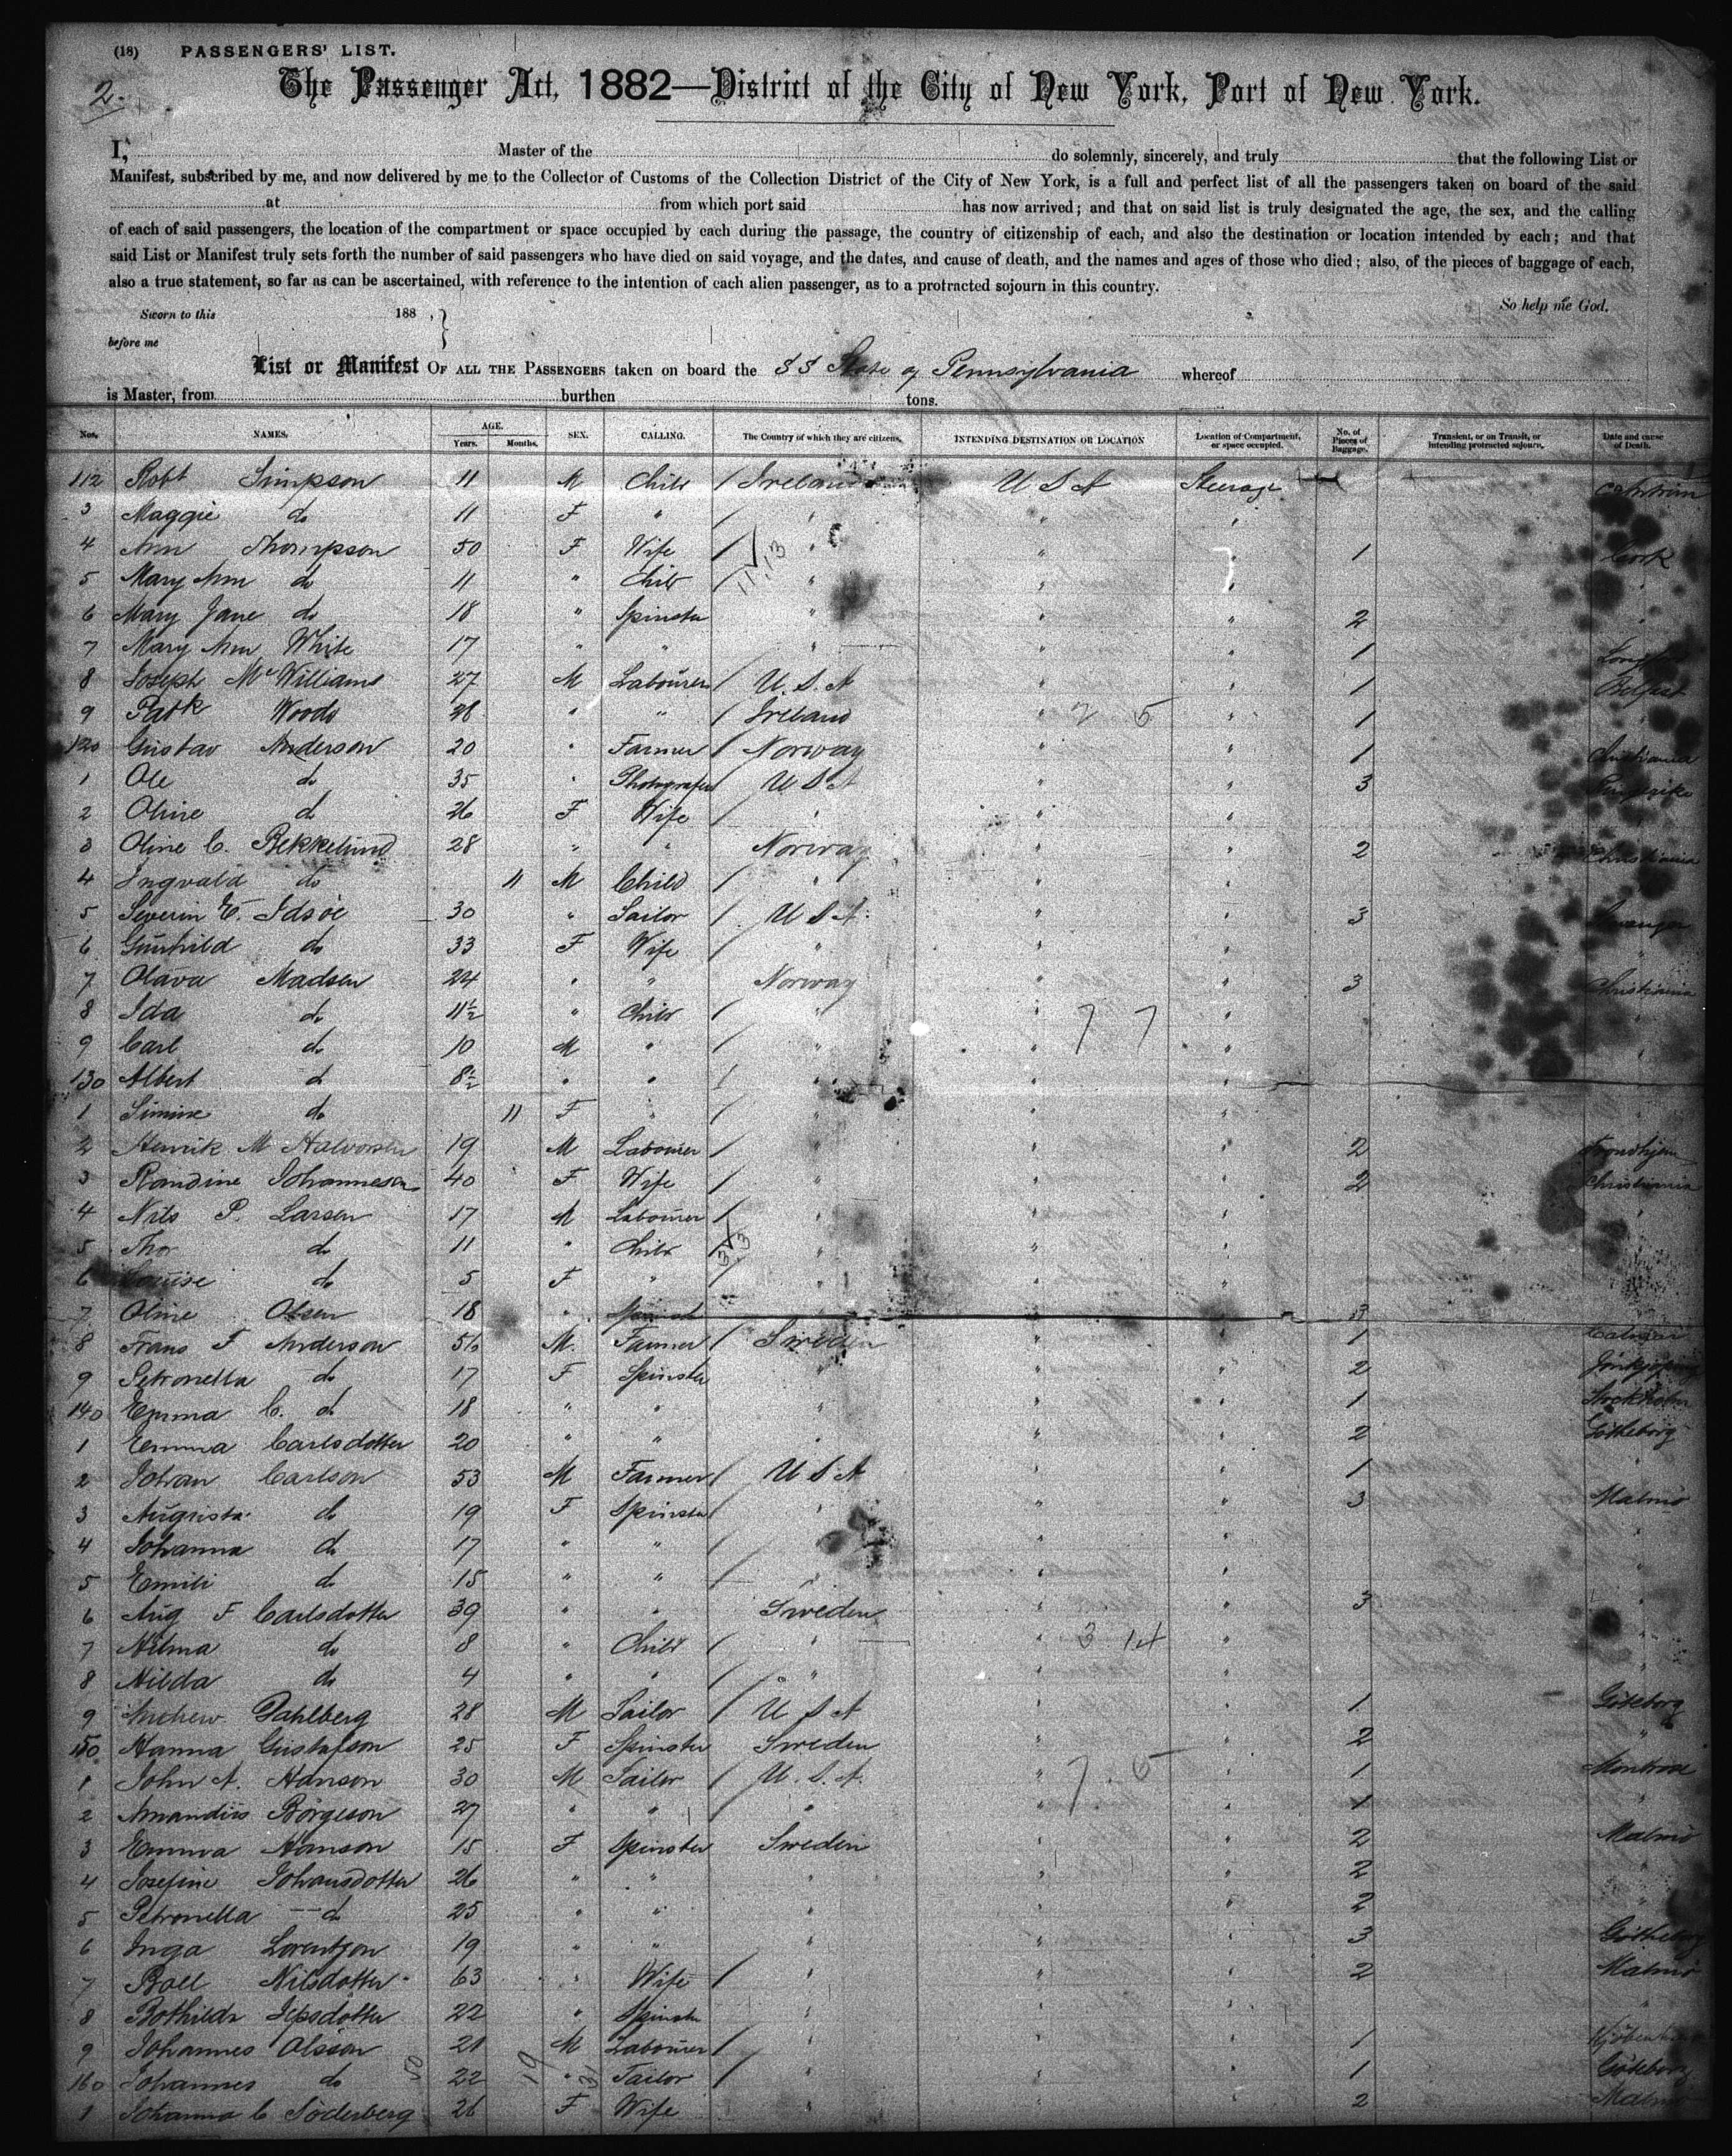 (18) PASSENGERS' LIST.
2.
The Passenger Act, 1882—District of the City of New York, Port of New York.
I, Master of the do solemnly, sincerely, and truly that the following List or
Manifest, subscribed by me, and now delivered by me to the Collector of Customs of the Collection District of the City of New York, is a full and perfect list of all the passengers taken on board of the said
at from which port said has now arrived; and that on said list is truly designated the age, the sex, and the calling
of each of said passengers, the location of the compartment or space occupied by each during the passage, the country of citizenship of each, and also the destination or location intended by each; and that
said List or Manifest truly sets forth the number of said passengers who have died on said voyage, and the dates, and cause of death, and the names and ages of those who died; also, of the pieces of baggage of each,
also a true statement, so far as can be ascertained, with reference to the intention of each alien passenger, as to a protracted sojourn in this country.
So help me God.
Sworn to this 188 , }
before me
List or Manifest OF ALL THE PASSENGERS taken on board the S S State of Pennsylvania whereof
is Master, from burthen tons.
Nos. NAMES. AGE. Years. Months. SEX. CALLING. The Country of which they are citizens. INTENDING DESTINATION OR LOCATION Location of Compartment, or space occupied. No. of Pieces of Baggage. Transient, or on Transit, or intending protracted sojourn. Date and cause of Death.
112 Robt Simpson 11 M Child / Ireland U S A Steerage
3 Maggie do 11 F " / " " "
4 Ann Thompson 50 F Wife / " " " 1 Cork
5 Mary Ann do 11 " Child / " " " "
6 Mary Jane do 18 " Spinster " " " 2 "
7 Mary Ann White 17 " " " " " 1
8 Joseph McWilliams 27 M Labourer / U.S.A " " 1 Belfast
9 Patk Woods 28 " " / Ireland " 7 5 " 1 "
120 Gustav Anderson 20 " Farmer / Norway " " 1 Christiania
1 Ole do 35 " Photografer / U S A " " 3
2 Oline do 26 F Wife / " " "
3 Oline C. Bekkelund 28 " " Norway " " 2 Christiania
4 Ingvald do 11 M Child / " " "
5 Severin E. Idsöe 30 " Sailor / U S A " " 3 Stavanger
6 Gunhild do 33 F Wife / " " " "
7 Olava Madsen 24 " " Norway " " 3 Christiania
8 Ida do 11½ " Child / " " 7 7 " "
9 Carl do 10 M " / " " " "
130 Albert do 8½ " " / " " "
1 Simine do 11 F " / " " " "
2 Henrik M Halvorsen 19 M Labourer / " " " 2 Trondhjem
3 Randine Johannesen 40 F Wife / " " " 2 Christiania
4 Nils P. Larsen 17 M Labourer / " " " "
5 Thor do 11 " Child / " " " "
6 Louise do 5 F " / " " " "
7 Oline Olsen 18 " " " " 3
8 Frans F Anderson 56 M. Farmer / Sweden " " 1 Calmar
9 Petronella do 17 F Spinster " " " 2 Jönkjöping
140 Emma C. do 18 " " " " " 1 Stockholm
1 Emma Carlsdotter 20 " " " " " 2 Götheborg
2 Johan Carlson 53 M Farmer / U S A " " 1 "
3 Augusta do 19 F Spinster / " " " 3 Malmö
4 Johanna do 17 " " / " " " "
5 Emili do 15 " " / " " " "
6 Aug F Carlsdotter 39 " " Sweden " " 3 "
7 Hilma do 8 " Child / " " 3 14 " "
8 Hilda do 4 " " / " " " "
9 Andrew Dahlberg 28 M Sailor / U S A " " 1 Göteborg
150 Hanna Gustafson 25 F Spinster Sweden " " 2 "
1 John A. Hanson 30 M Sailor / U.S.A. " 7 5 " 1 Montrose
2 Amandus Börgeson 27 " " / " " " 1 "
3 Emma Hanson 15 F Spinster Sweden " " 2 Malmö
4 Josefine Johansdotter 26 " " " " " 2 "
5 Petronella do 25 " " " " " 2 "
6 Inga Lorentzon 19 " " " " " 3 Götheborg
7 Boel Nilsdotter 63 " Wife / " " " 2 Malmö
8 Bothilda Jepsdotter 22 " Spinster " " " "
9 Johannes Olsson 21 M Labourer / " " " 1
160 Johannes do 22 " Tailor / " " " 1 Göteborg
1 Johanna C Söderberg 26 F Wife " " " 2 Malmö